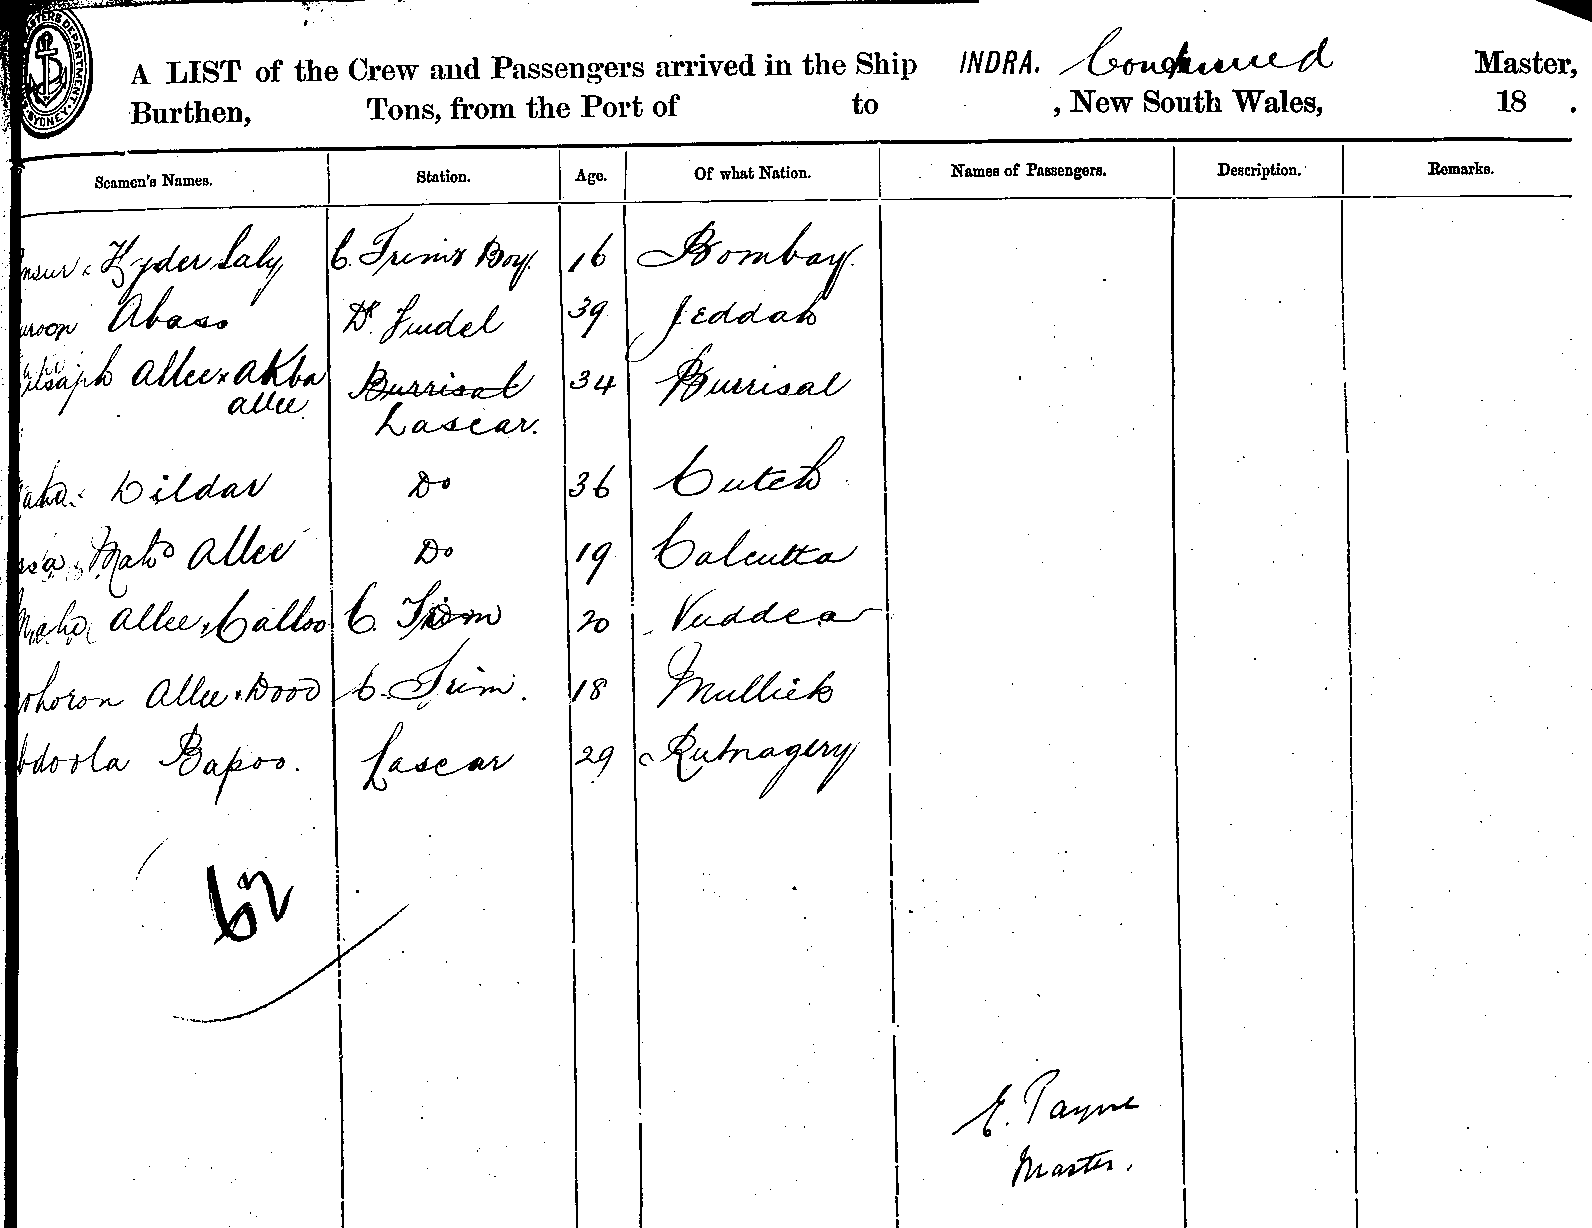 A LIST of the Crew and Passengers arrived in the Ship INDRA. Continued Master,
Burthen, Tons, from the Port of to , New South Wales, 18 .
Seamen's Names. Station. Age. Of what Nation. Names of Passengers. Description. Remarks.
Hyder Saly C. Trim's Boy. 16 Bombay.
Abass Dk. Tindel 39 Jeddah
Allee x Akba Burrisal 34 Burrisal
allee. Lascar.
Dildar Do 36 Cutch
Mahd Allee Do 19 Calcutta
Mahd Allee x Calloo C. Trim 20 Nuddea
Allee x Dood C. Trim. 18 Mullick
bdoola Bapoo. Lascar 29 Rutnagery
62
E. Payne
Master.